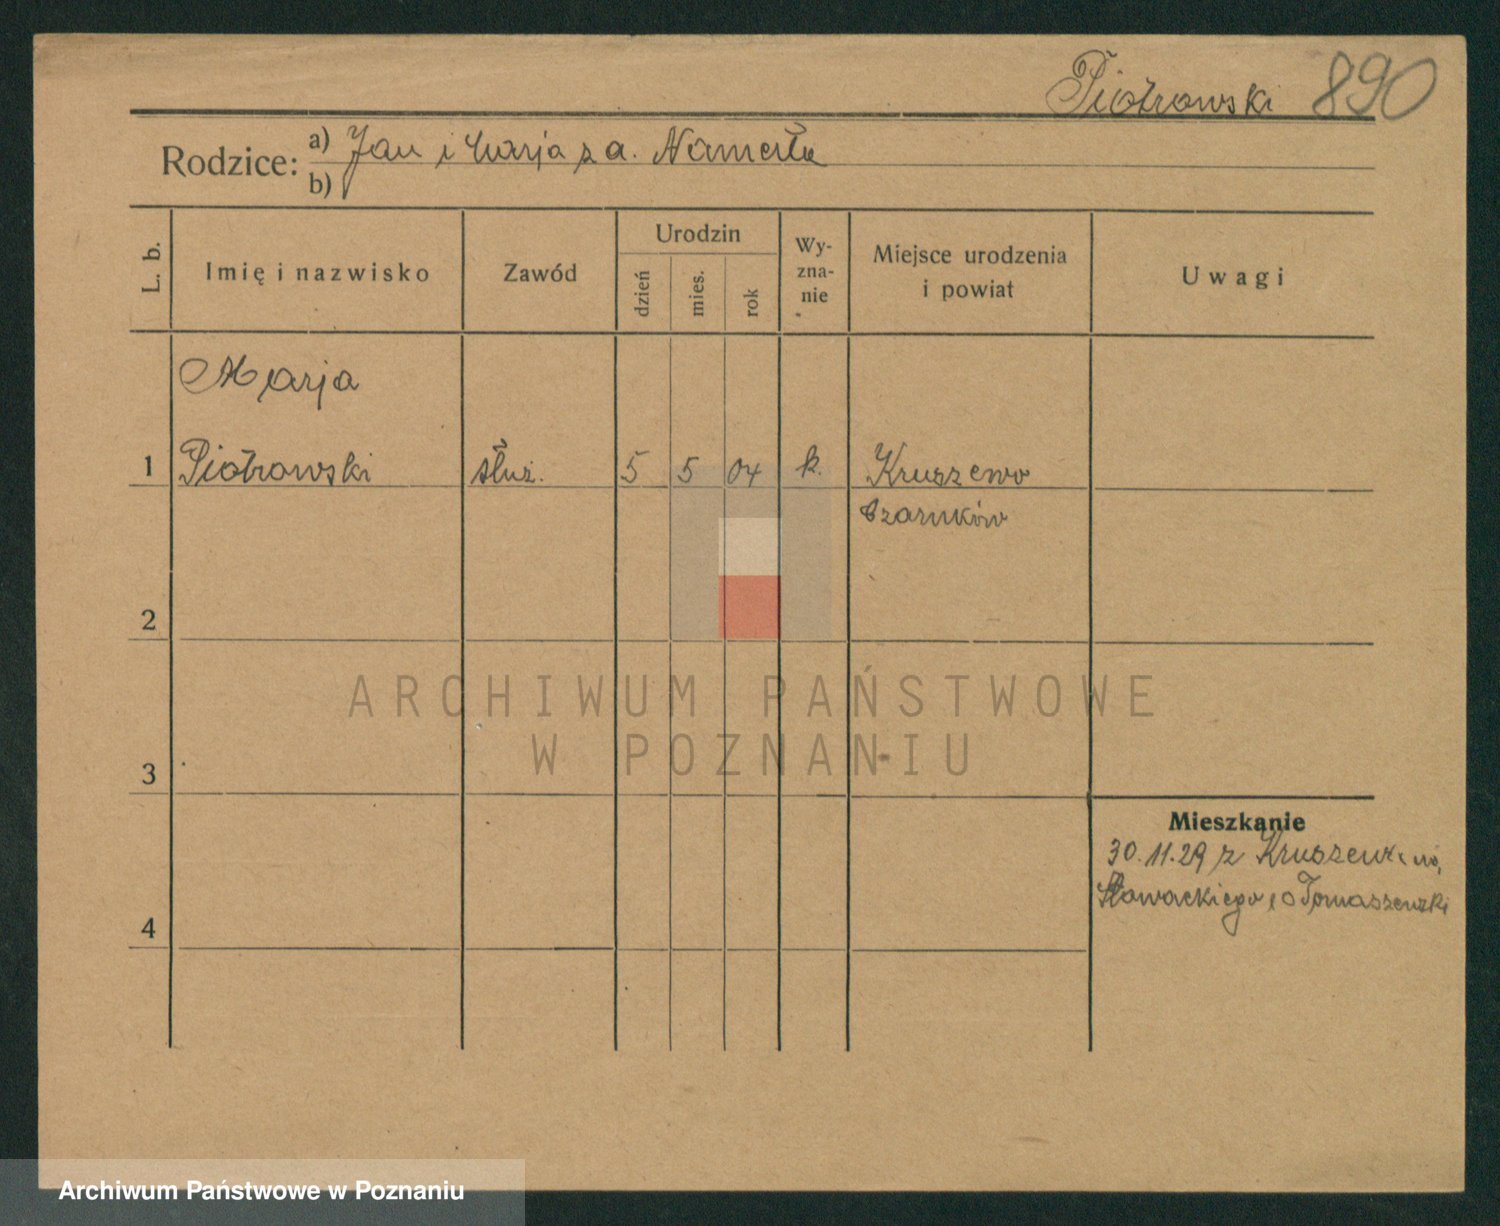 Piotrowski 890
Rodzice: a) Jan i Marja z d.
b)
L. b.
Imię i nazwisko
Zawód
Urodzin
dzień
mies.
rok
Wy-
zna-
nie
Miejsce urodzenia
i powiat
Uwagi
Marja
1 Piotrowski służ. 5 5 04 k. Kruszewo
Czarnków
2
ARCHIWUM PAŃSTWOWE
W POZNANIU
3
Mieszkanie
30.11.29 z
Słowackiego
4
Archiwum Państwowe w Poznaniu